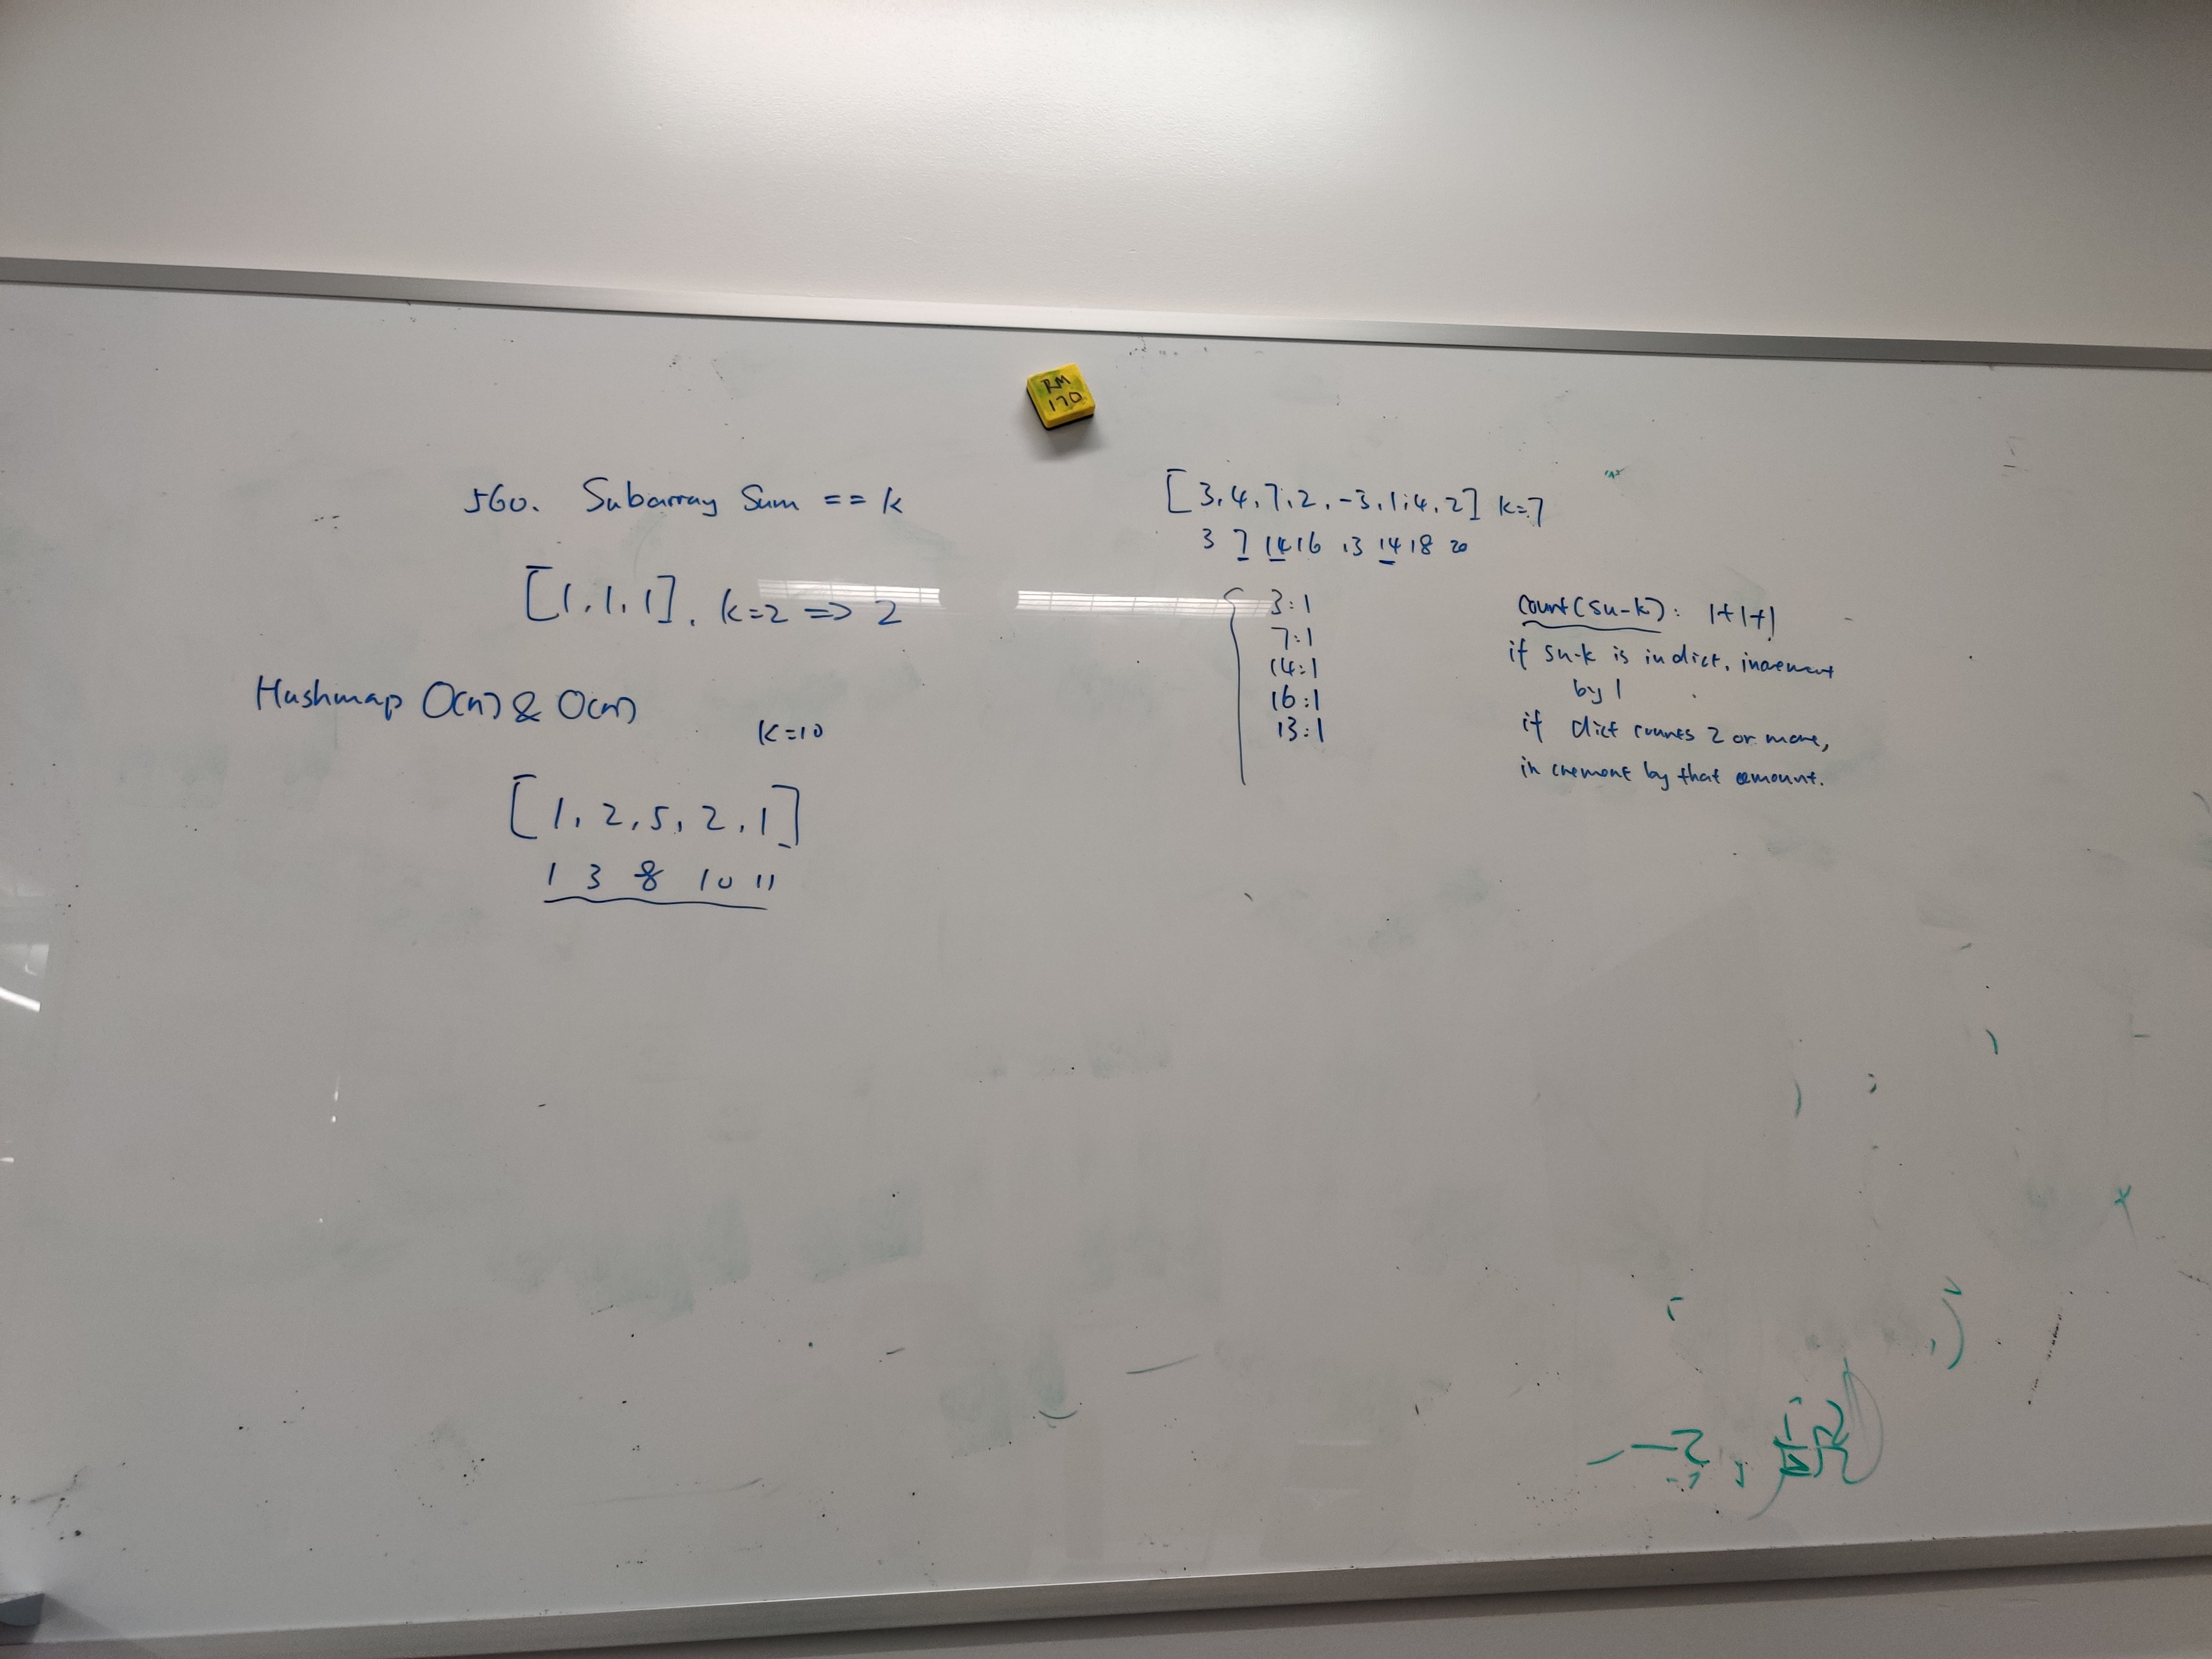 RM
170
560. Subarray Sum == k
[1,1,1], k=2 => 2
Hashmap O(n) & O(n)
k=10
[1, 2, 5, 2, 1]
1 3 8 10 11
[3,4,7,2,-3,1,4,2] k=7
3 7 14 16 13 14 18 20
3:1
7:1
14:1
16:1
13:1
count(sn-k): 1+1+1
if sn-k is in dict, increment
by 1
if dict counts 2 or more,
increment by that amount.